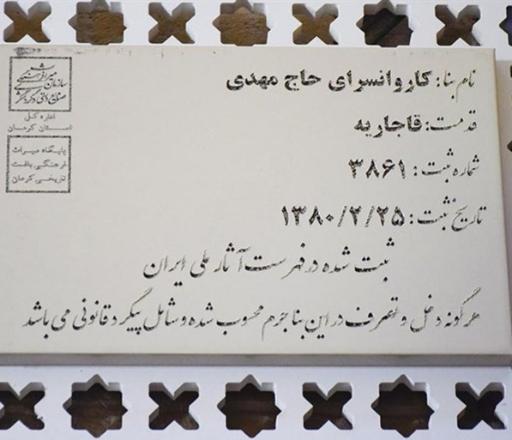 نام بنا: کاروانسرای حاج مهدی
قدمت: قاجاریه
شماره ثبت: ۳۸۶۱
تاریخ ثبت: ۱۳۸۰/۲/۲۵
ثبت شده در فهرست آثار ملی ایران
هرگونه دخل و تصرف در این بنا جرم محسوب شده و شامل پیگرد قانونی می باشد
سازمان میراث فرهنگی
صنایع دستی و گردشگری
اداره کل
استان کرمان
پایگاه میراث
فرهنگی بافت
تاریخی کرمان